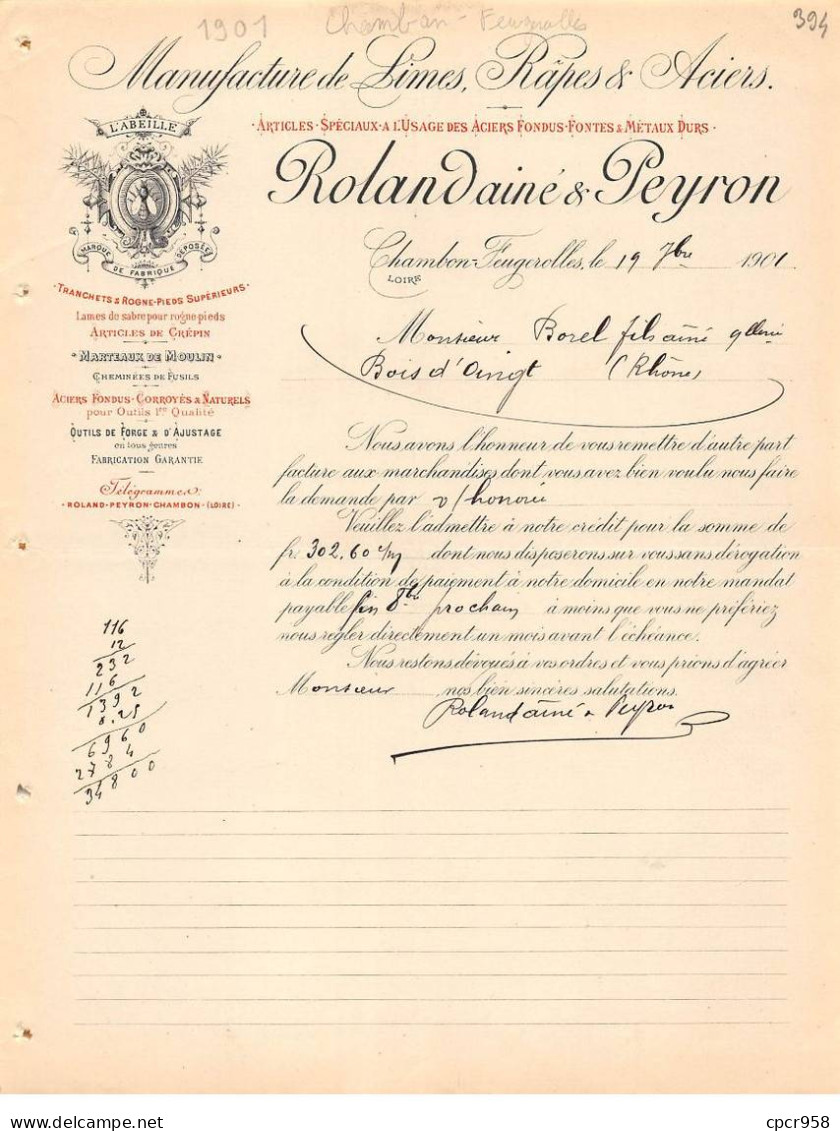 1901 Chambon-Feugerolles
394
Manufacture de Limes, Râpes & Aciers.
L'ABEILLE
MARQUE DE FABRIQUE DÉPOSÉE
· ARTICLES · SPÉCIAUX · A L'USAGE DES ACIERS FONDUS · FONTES & MÉTAUX DURS ·
Roland ainé & Peyron
Chambon-Feugerolles, le 19 7bre 1901
LOIRE
· TRANCHETS & ROGNE-PIEDS SUPÉRIEURS ·
Lames de sabre pour rogne pieds
ARTICLES DE CRÉPIN
· MARTEAUX DE MOULIN ·
CHEMINÉES DE FUSILS
ACIERS FONDUS · CORROYÉS & NATURELS
pour Outils 1re Qualité
OUTILS DE FORGE & D'AJUSTAGE
en tous genres
FABRICATION GARANTIE
Télégrammes:
· ROLAND-PEYRON-CHAMBON-(LOIRE) ·
Monsieur Borel fils ainé
Bois d'Oingt (Rhône)
Nous avons l'honneur de vous remettre d'autre part
facture aux marchandises dont vous avez bien voulu nous faire
la demande par v/honorée
Veuillez l'admettre à notre crédit pour la somme de
fr. 302,60 dont nous disposerons sur vous sans dérogation
à la condition de paiement à notre domicile en notre mandat
payable fin 8bre prochain à moins que vous ne préfériez
nous régler directement un mois avant l'échéance.
Nous restons dévoués à vos ordres et vous prions d'agréer
Monsieur nos bien sincères salutations.
Roland ainé & Peyron
116
12
232
116
1392
8.25
6960
2784
34800
cpcr958